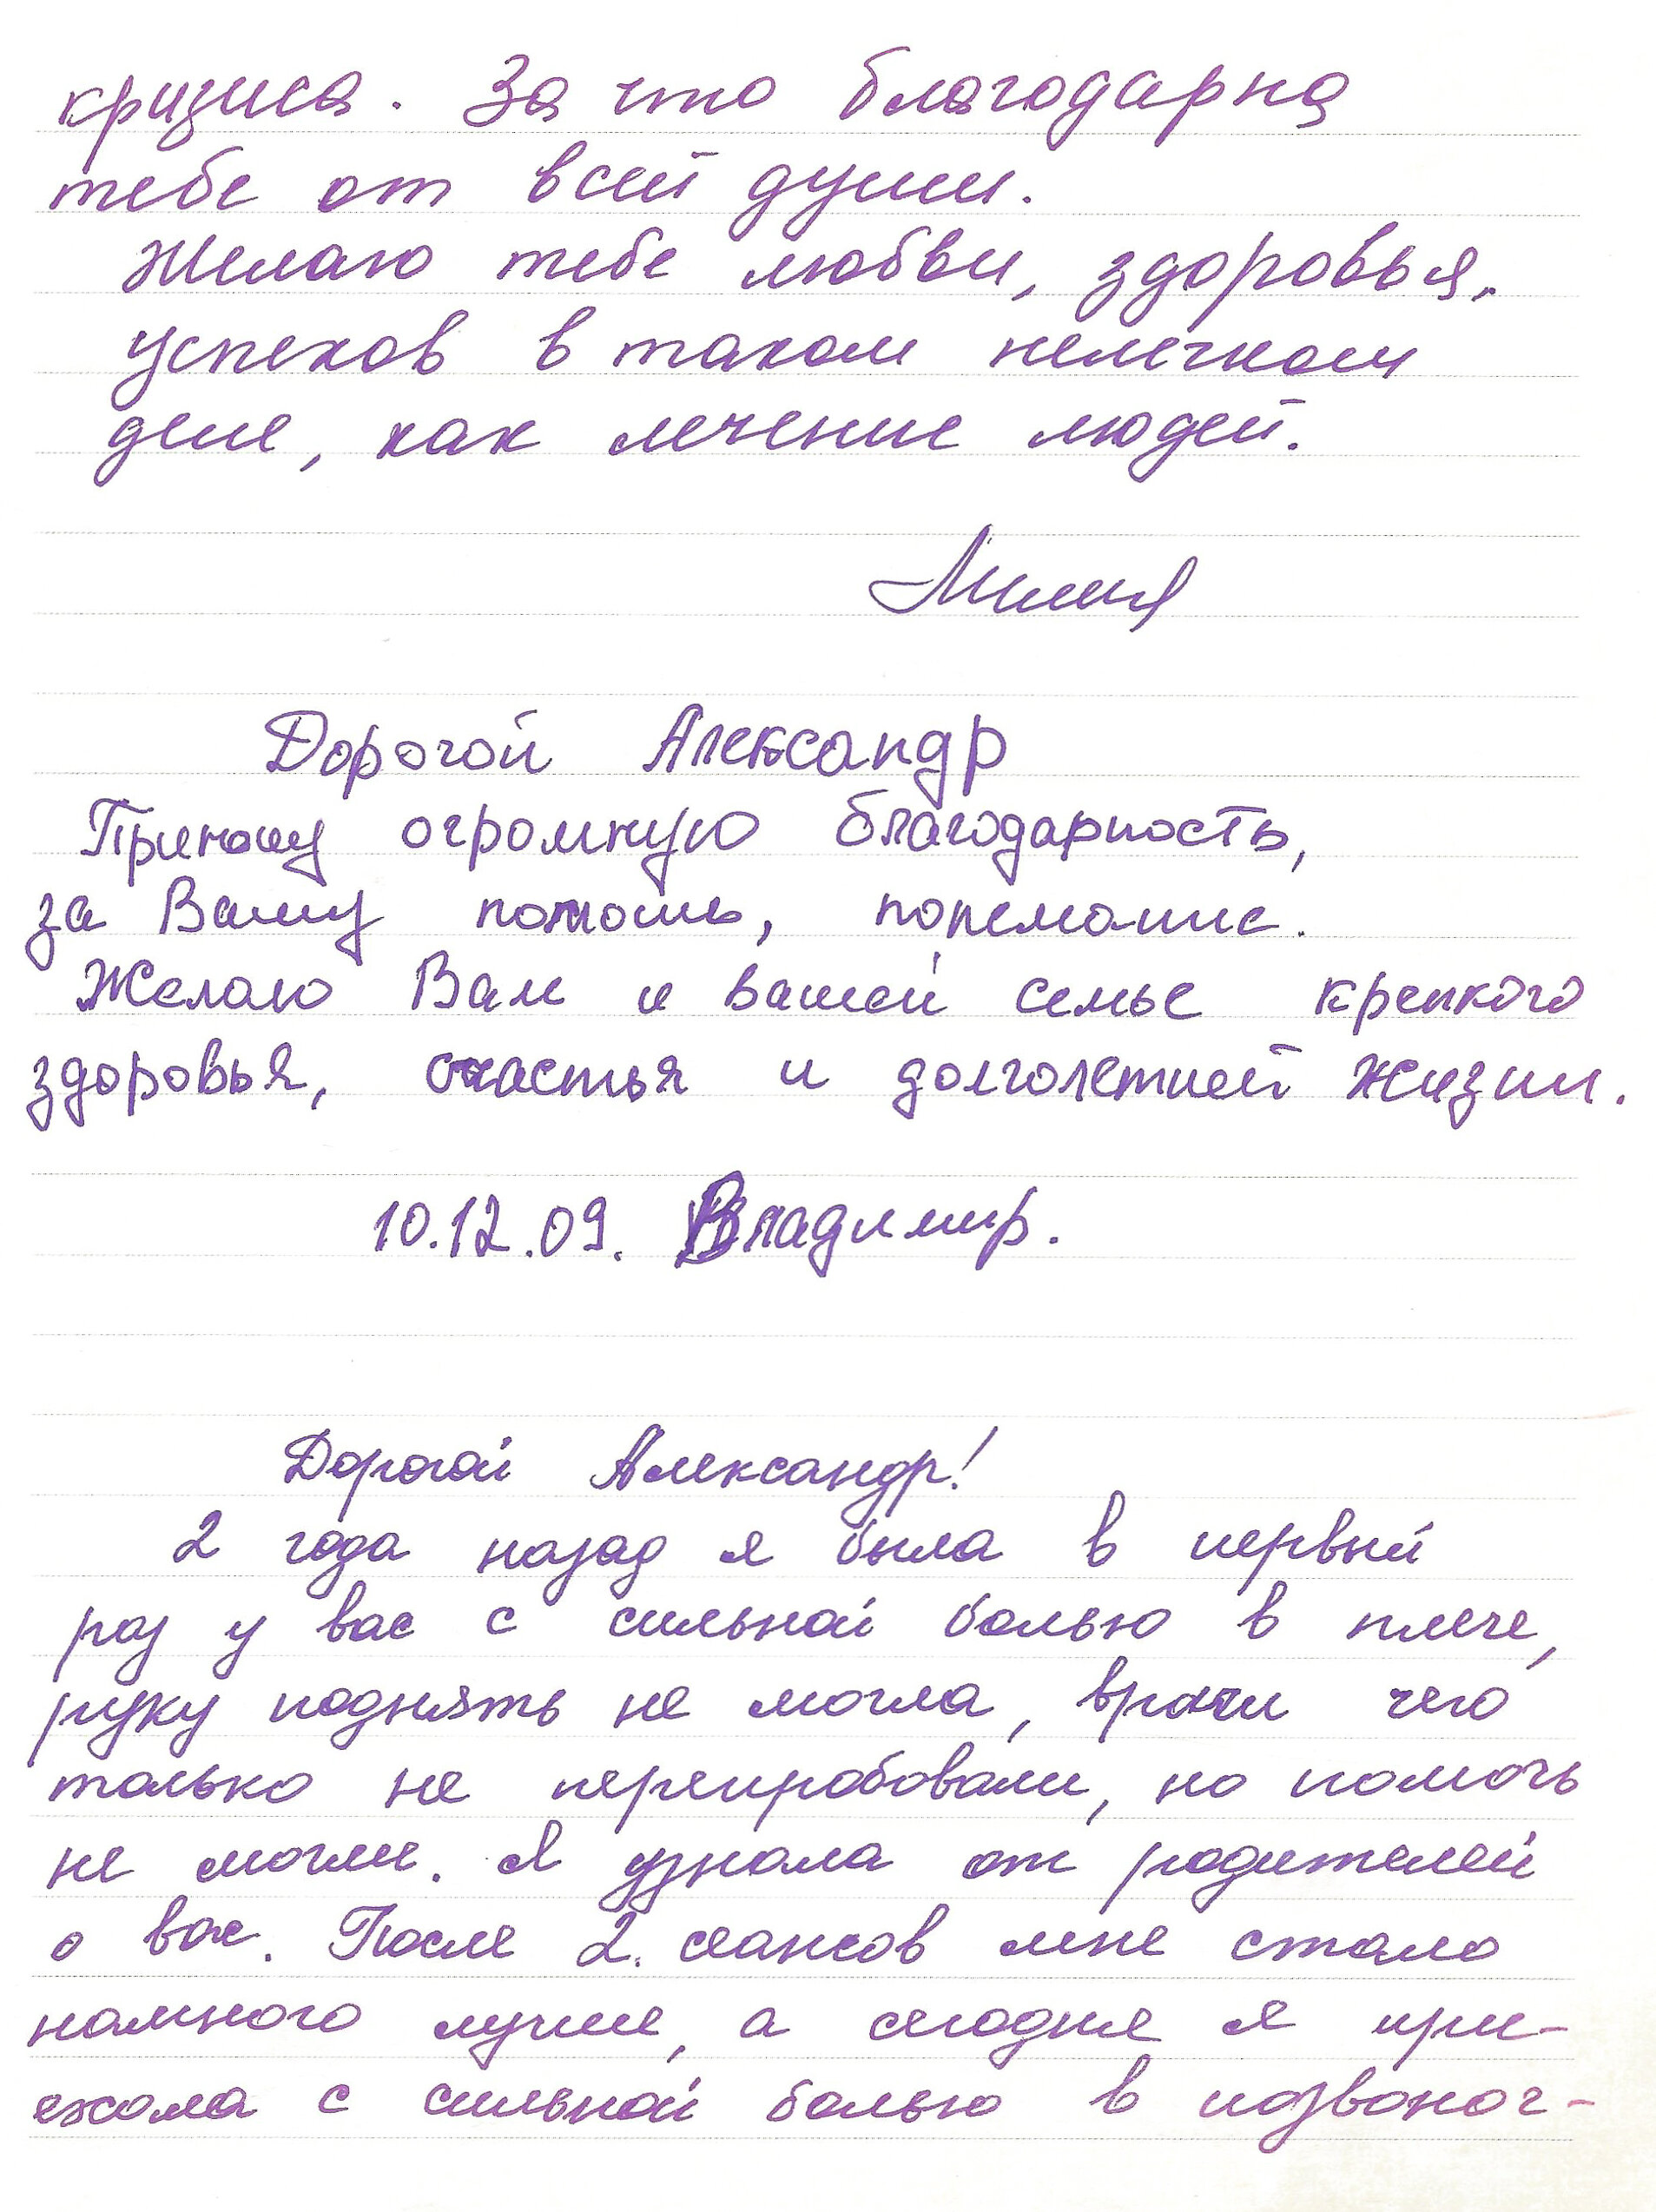 кризиса. За что благодарна
тебе от всей души.
Желаю тебе любви, здоровья,
успехов в таком нелегком
деле, как лечение людей.
Лилия
Дорогой Александр
Приношу огромную благодарность,
за Вашу помошь,
Желаю Вам и вашей семье крепкого
здоровья, счастья и долголетней жизни.
10.12.09. Владимир.
Дорогой Александр!
2 года назад я была в первый
раз у вас с сильной болью в плече,
руку поднять не могла, врачи чего
только не перепробовали, но помочь
не могли. Я узнала от родителей
о вас. После 2. сеансов мне стало
намного лучше, а сегодня я при-
ехала с сильной болью в позвоноч-